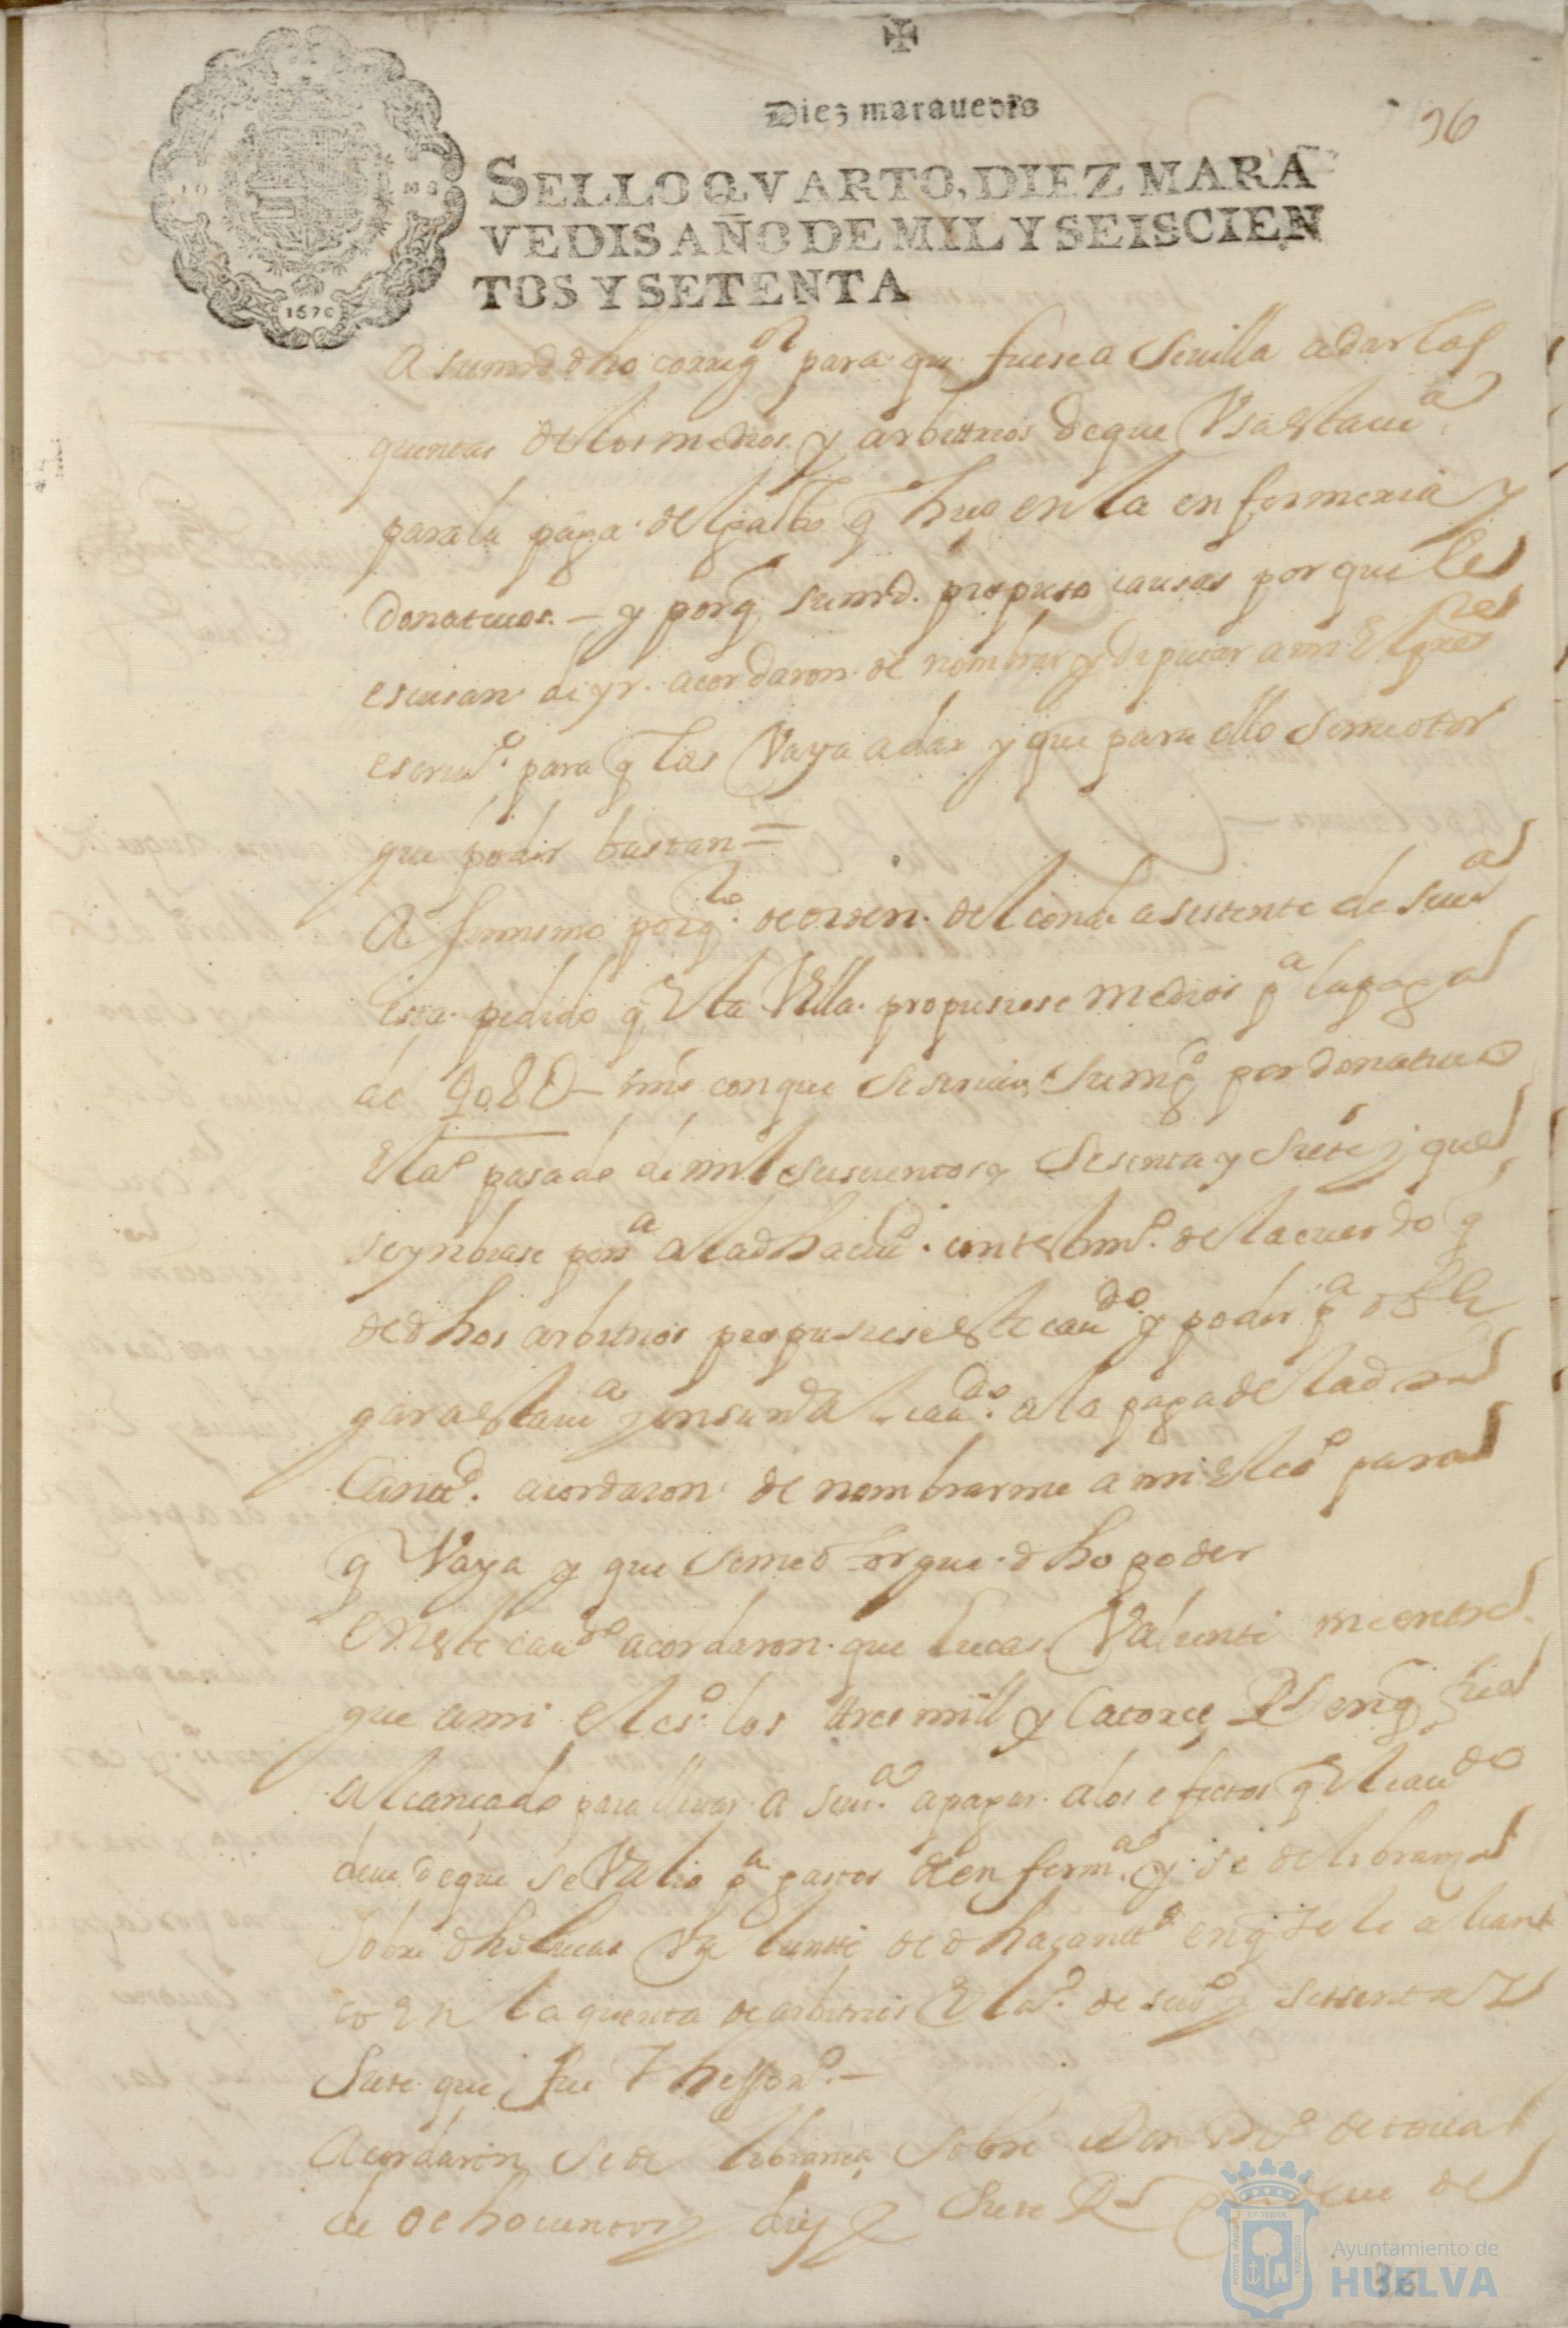 Diez marauedis
36
SELLO QVARTO, DIEZ MARA
VEDIS AÑO DE MIL Y SEISCIEN
TOS Y SETENTA
1670
A su md dho corregor para que fuese a Seuilla a dar las
quentas de los medios y arbittrios de que Usa esta uia
para la paga del gasto q hiço en la enfermeria y
donatiuos - y porq su md. propuso causas por que les
escusan de yr. acordaron de nombrar y diputar a mi El preste
escriuo. para q las Vaya a dar y que para ello se me otor
gue poder bastante =
A ssimismo porqto. de orden del conde asistente de seua
esta pedido q Esta Villa propusiese medios pa la paga
de con que se siruio su mgd por donatiuo
El ao pasado de mil seiscientos y sesenta y siete y que
se ynbiase persna a la dha ciud. con testimo. del acuerdo q
de dhos arbitrios propusiese este caudo y poder pa obli
gar a esta uia y en su nre a la paga de la dha
Cantd. acordaron de nombrarme a mi El esno para
q Vaya y que se me otorgue dho poder
En este caudo acordaron que Lucas Valiente me entre
gue a mi el eso. los tres mill y Catorce Rs en q fue
alcançado para lleuar a seua. a pagar a los efectos q El caudo
deue de que se Valio pa gastos de enferma. y se de libramça
sobre dho Lucas Valiente de dha cantd en q se le alcan
ço En la quenta de arbitrios El ao. de seisos y sesenta y
siete que fue Thessoro. -
Acordaron se de librança sobre Don de
de ochocientos diez y siete Rs que deue de
Ayuntamiento de
HUELVA
36